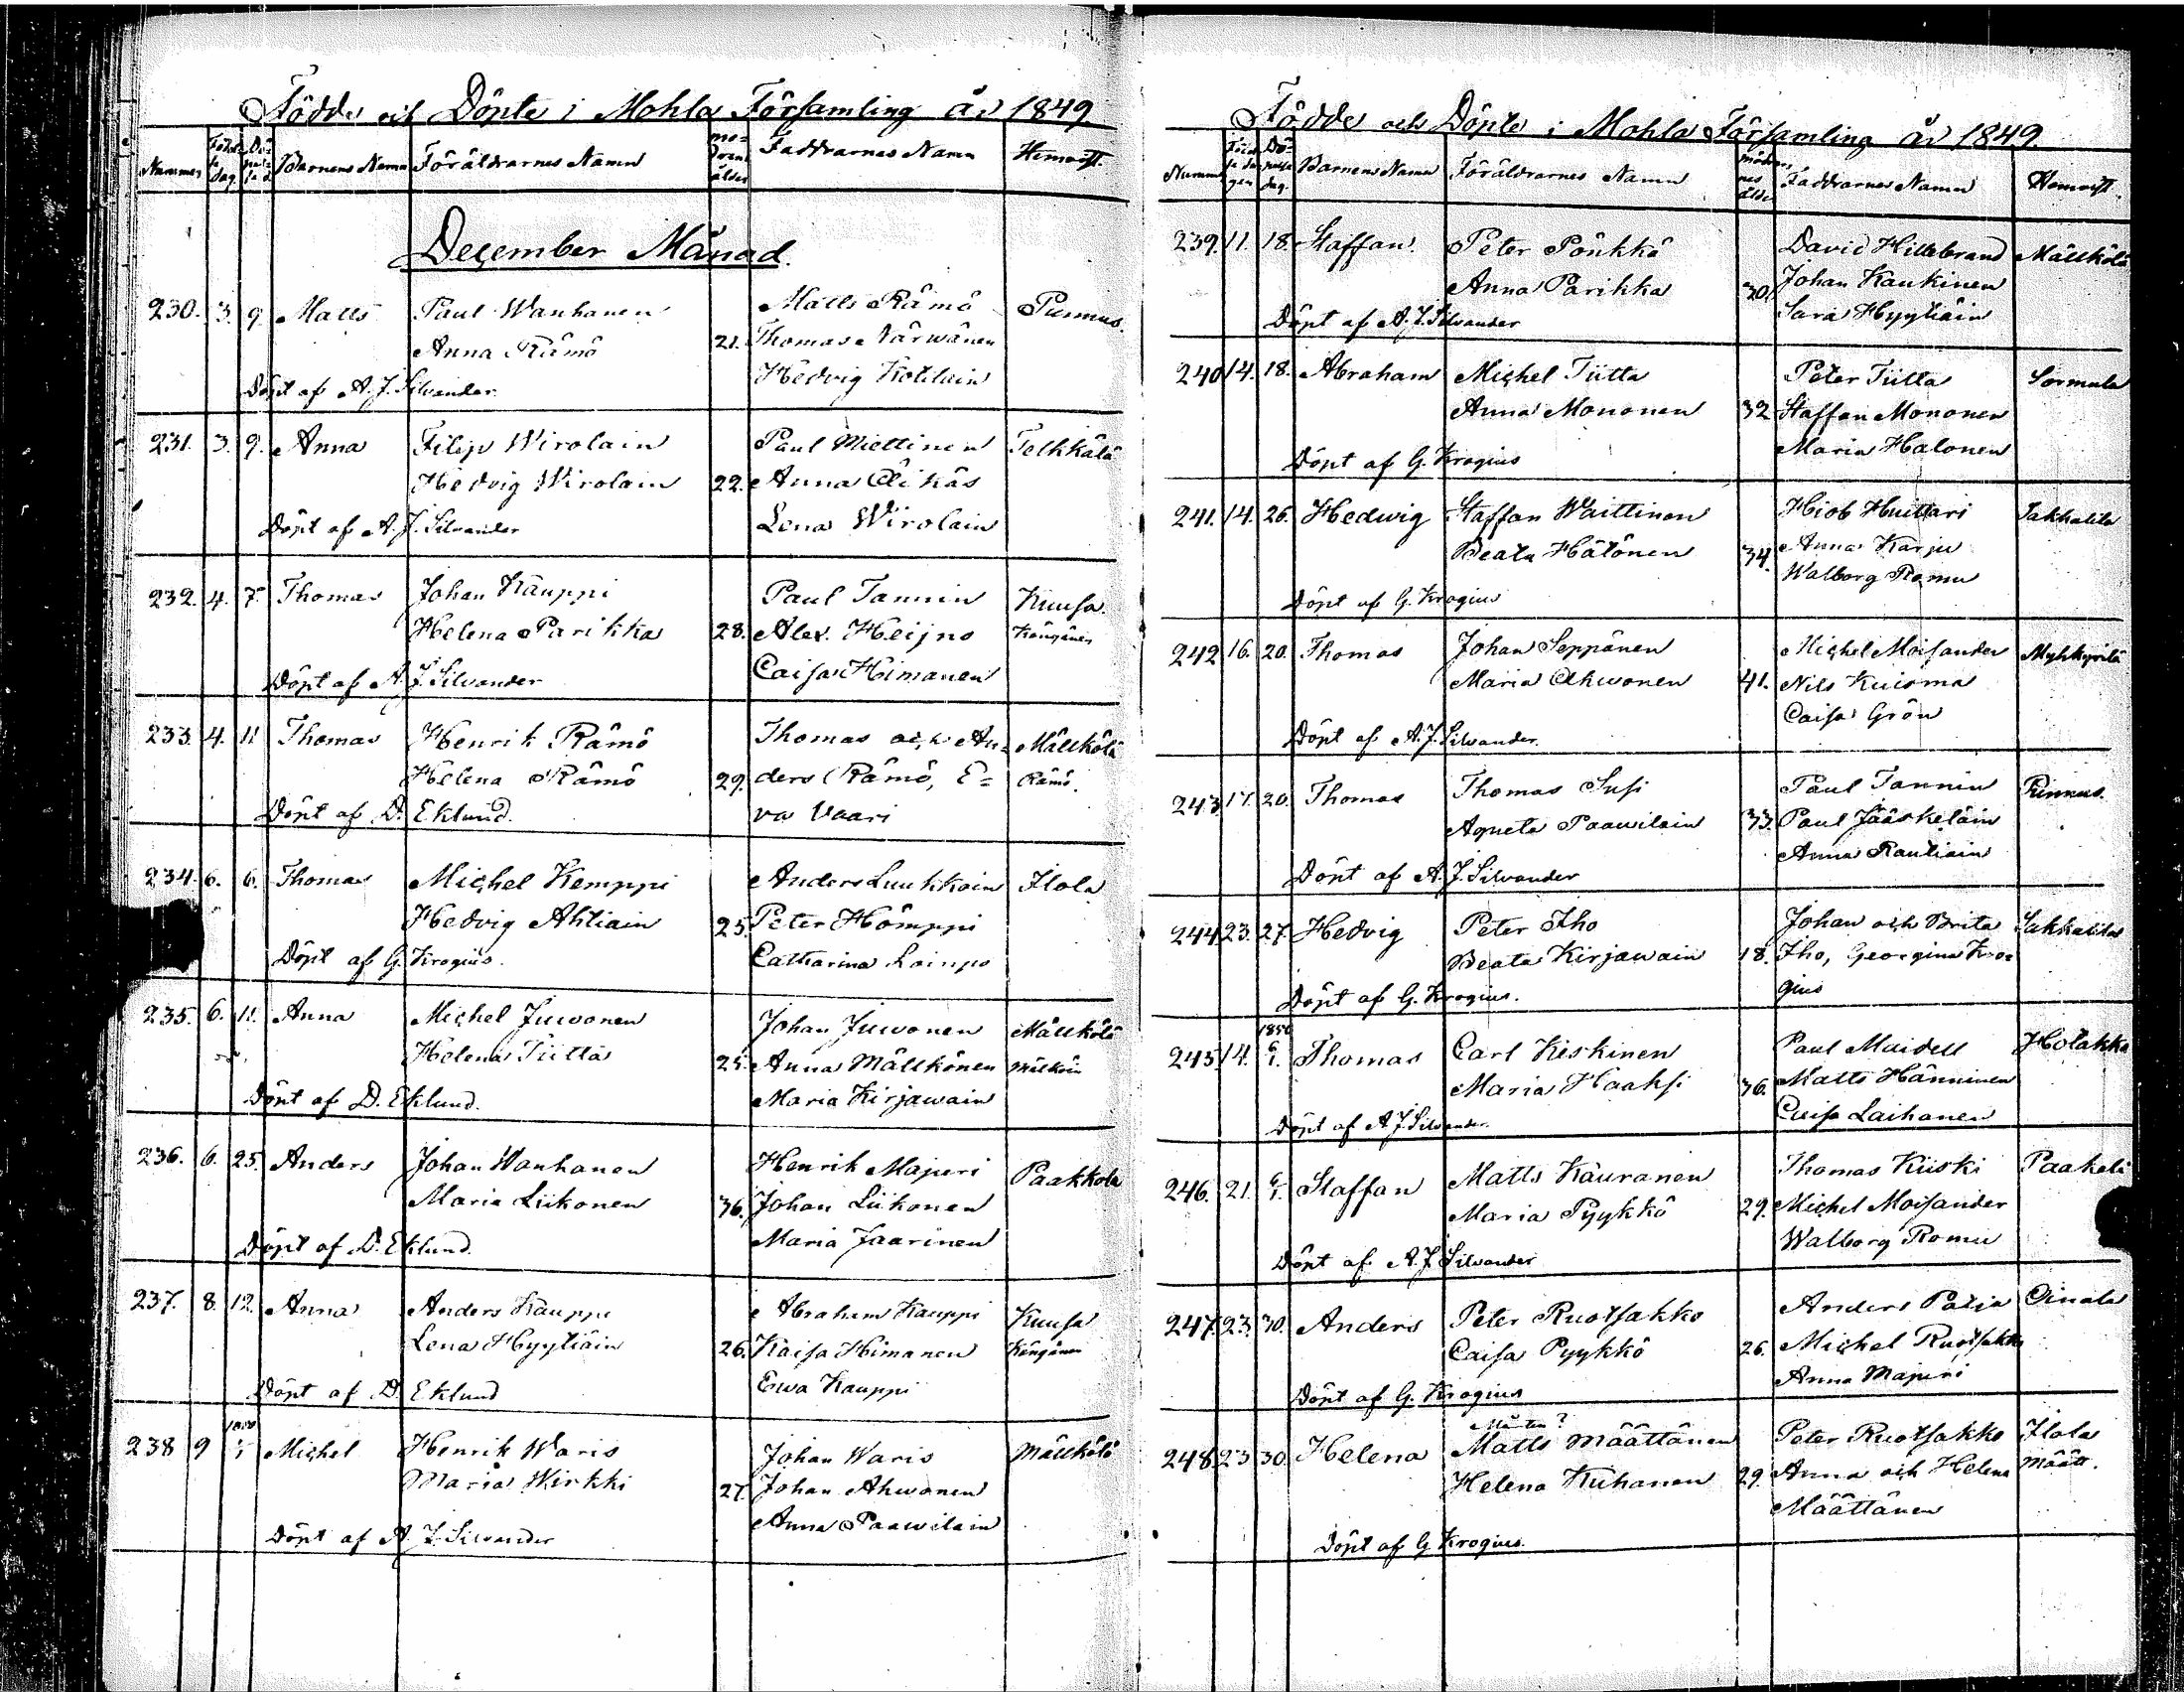 Födde och Döpte i Mohla Församling år 1849
Nummer Födelse dag Döpelse d. Barnens Namn Föräldrarnes Namn Modrens ålder Faddrarnes Namn Hemvist.
December Månad.
230. 3. 9. Matts Paul Wanhanen Matts Rämö Punnus.
Anna Rämö 21. Thomas Närwänen
Hedvig Kotilain
Döpt af A. J. Silvander.
231. 3. 9. Anna Filip Wirolain Paul Miettinen Telkkälä
Hedvig Wirolain 22. Anna Äikäs
Döpt af A. J. Silvander Lena Wirolain
232. 4. 7. Thomas Johan Kauppi Paul Tannin Kuusa
Helena Parikka 28. Alex. Heijno Kängänen
Döpt af A. J. Silvander Caisa Himanen
233. 4. 11 Thomas Henrik Rämö Thomas och An= Mällkölä
Helena Rämö 29. ders Rämö, E= Rämö.
Döpt af D. Eklund. va Vaari
234. 6. 6. Thomas Michel Kemppi Anders Luukkain Ilola
Hedvig Ahtiain 25. Peter Hömppi
Döpt af G. Krogius. Catharina Loinpo
235. 6. 11. Anna Michel Juvonen Johan Juvonen Mällkölä
Helena Tiitta 25. Anna Mällkönen Mälköin
Döpt af D. Eklund. Maria Kirjawain
236. 6. 25. Anders Johan Wanhanen Henrik Majuri Paakkola
Maria Liikonen 36. Johan Liikonen
Döpt af D. Eklund. Maria Jaarinen
237. 8. 12. Anna Anders Kauppi Abraham Kauppi Kuusa
Lena Hyytiäin 26. Kaisa Himanen Kängänen
Döpt af D. Eklund Ewa Kauppi
1850
238 9 1/1 Michel Henrik Waris Johan Waris Mällkölä
Maria Wirkki 27. Johan Ahwonen
Döpt af A. J. Silvander Anna Paawilain
Födde och Döpte i Mohla Församling år 1849.
Nummer Födelsedagen Döpelse dag. Barnens Namn Föräldrarnes Namn Modrenes ålder Faddrarnes Namn Hemvist.
239. 11. 18. Staffan Peter Pönkkö David Hillebrand Mällkölä
Anna Parikka 30. Johan Kaukinen
Döpt af A. J. Silvander Sara Hyytiäin
240 14. 18. Abraham Michel Tiitta Peter Tiitta Sormula
Anna Mononen 32 Staffan Mononen
Döpt af G. Krogius Maria Halonen
241. 14. 26. Hedwig Staffan Waittinen Hiob Huittari Sakkalila
Beata Hätönen 34. Anna Karju
Döpt af G. Krogius Walborg Romu
242 16. 20. Thomas Johan Seppänen Michel Moisander Myhkyrilä
Maria Ahwonen 41. Nils Kuisma
Döpt af A. J. Silvander. Caisa Grön
243 17. 20. Thomas Thomas Susi Paul Tannin Pinnus.
Agneta Paawilain 33. Paul Jääskeläin
Döpt af A. J. Silvander Anna Rautiain
244 23. 27. Hedvig Peter Iho Johan och Brita Sakkalila
Beata Kirjawain 18. Iho, Georgina Kro=
Döpt af G. Krogius. gius
1850
245 14. 6/1. Thomas Carl Keskinen Paul Maidell Hotakka
Maria Haaksi 36. Matts Hänninen
Döpt af A. J. Silvander. Caisa Laihanen
246. 21. 6/1. Staffan Matts Kauranen Thomas Kiiski Paakeli
Maria Pyykkö 29. Michel Moisander
Döpt af A. J. Silvander Walborg Romu
247. 23. 30. Anders Peter Ruotsakko Anders Patja Oinala
Caisa Pyykkö 26. Michel Ruotsakko
Döpt af G. Krogius Anna Majuri
Mårten?
248. 23 30. Helena Matts Määttänen Peter Ruotsakko Ilola
Helena Kuhanen 29. Anna och Helena Määtt.
Määttänen
Döpt af G. Krogius.